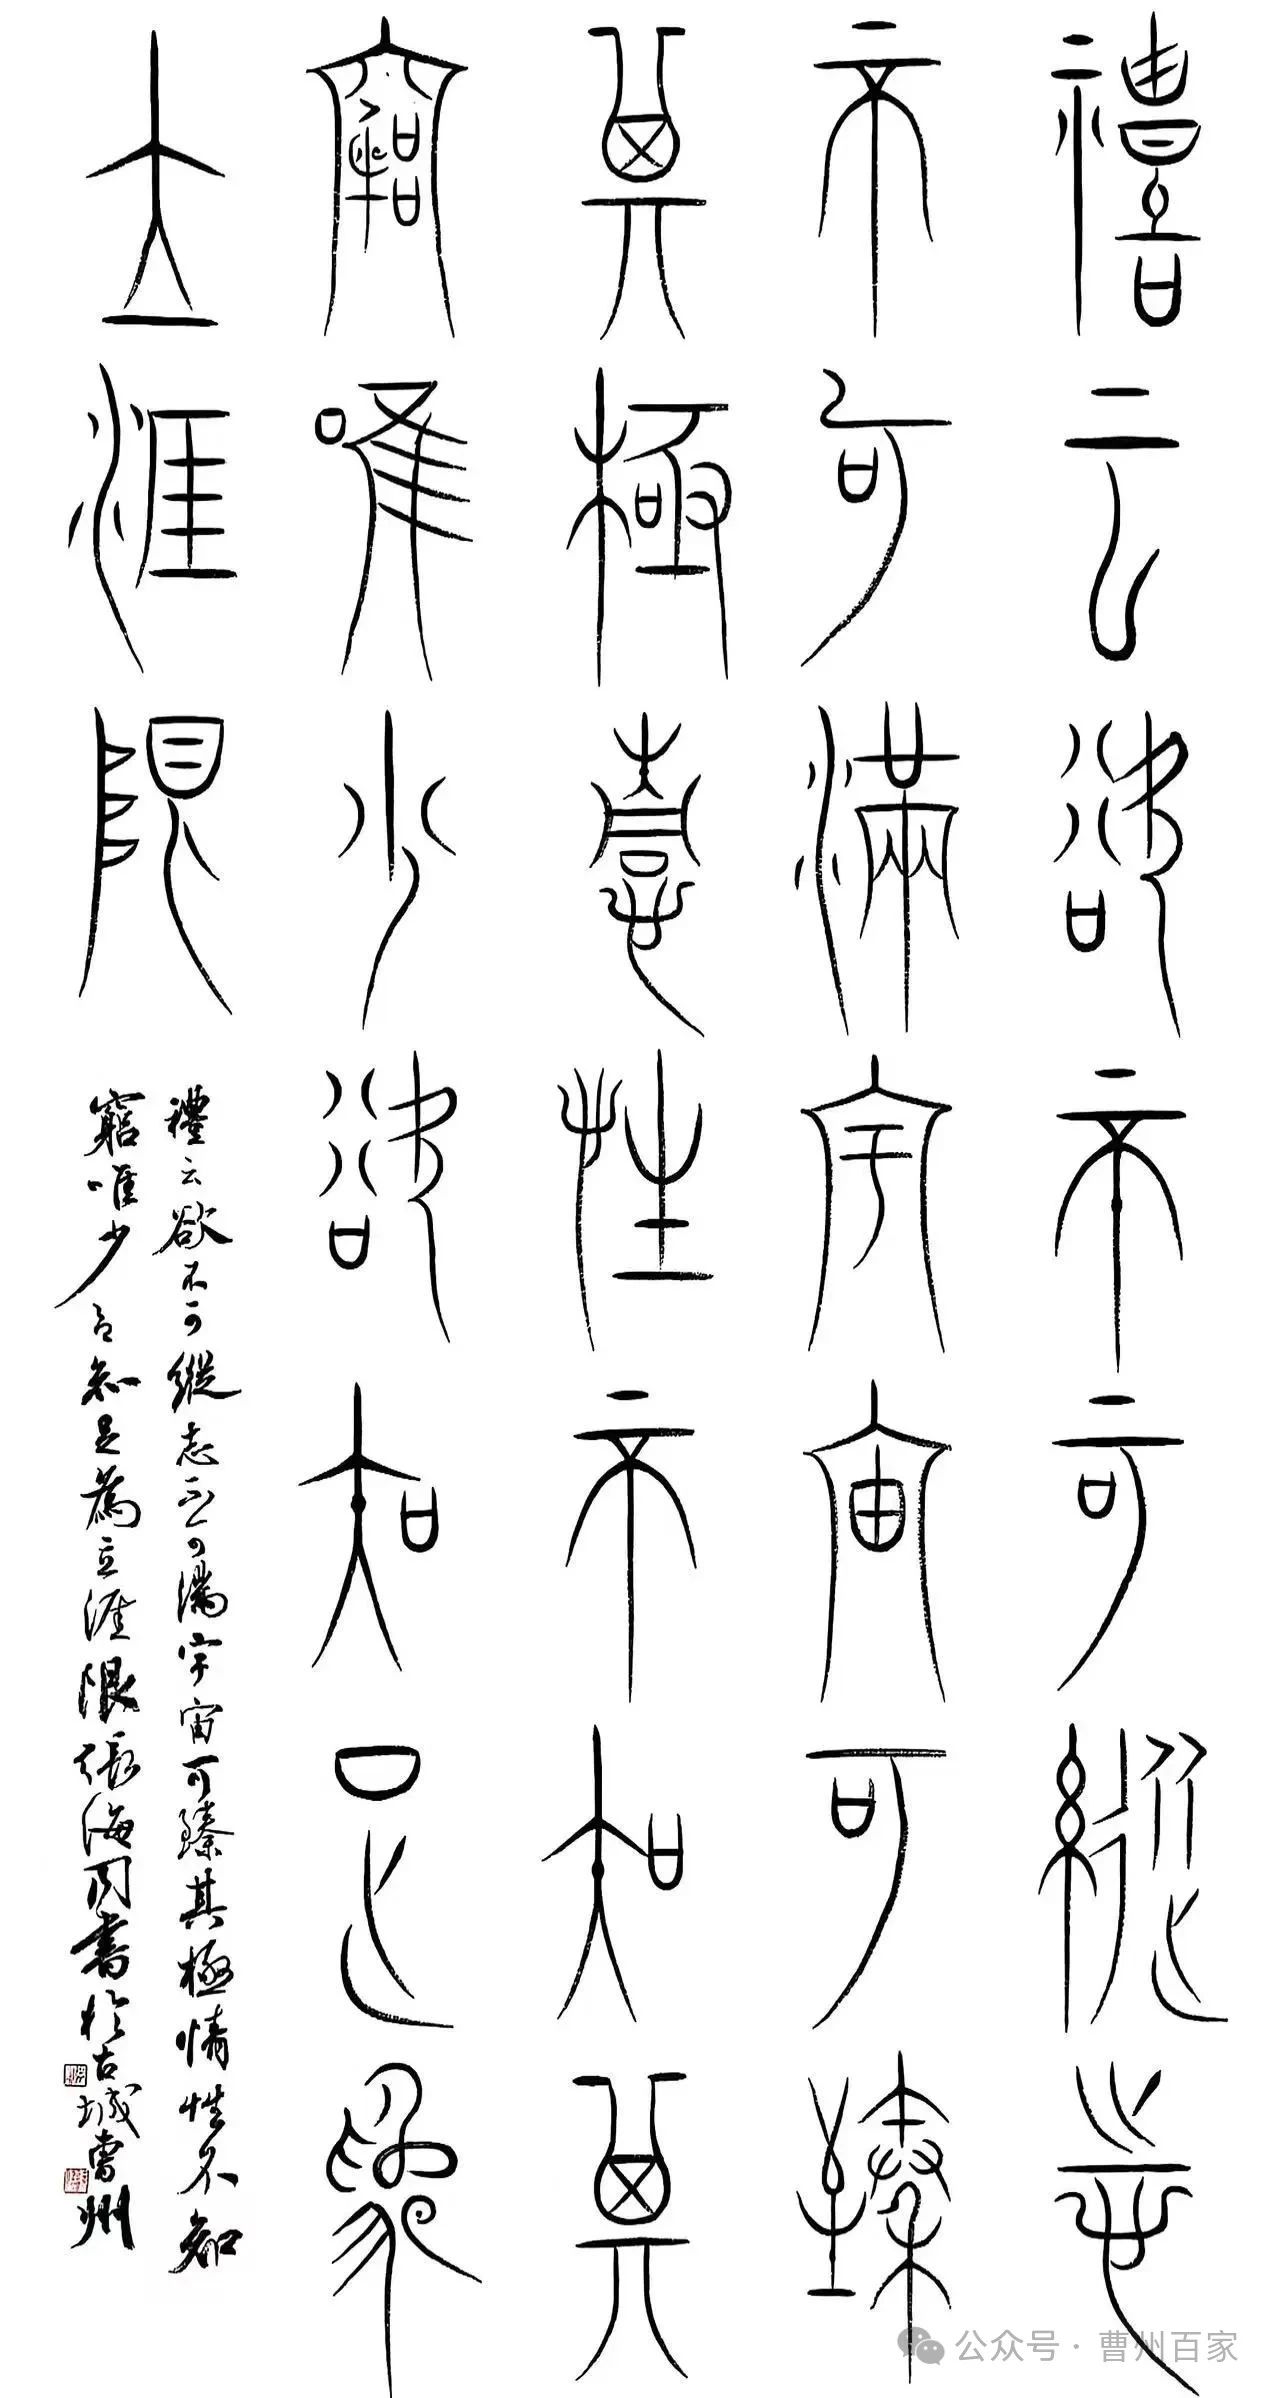 禮云欲不可縱志
不可滿宇宙可臻
其極情性不知其
窮唯少欲知足為
立涯限
禮云欲不可縱志不可滿宇宙可臻其極情性不知
窮唯少知足為立涯限張海書於古城曹州
公众号·曹州百家